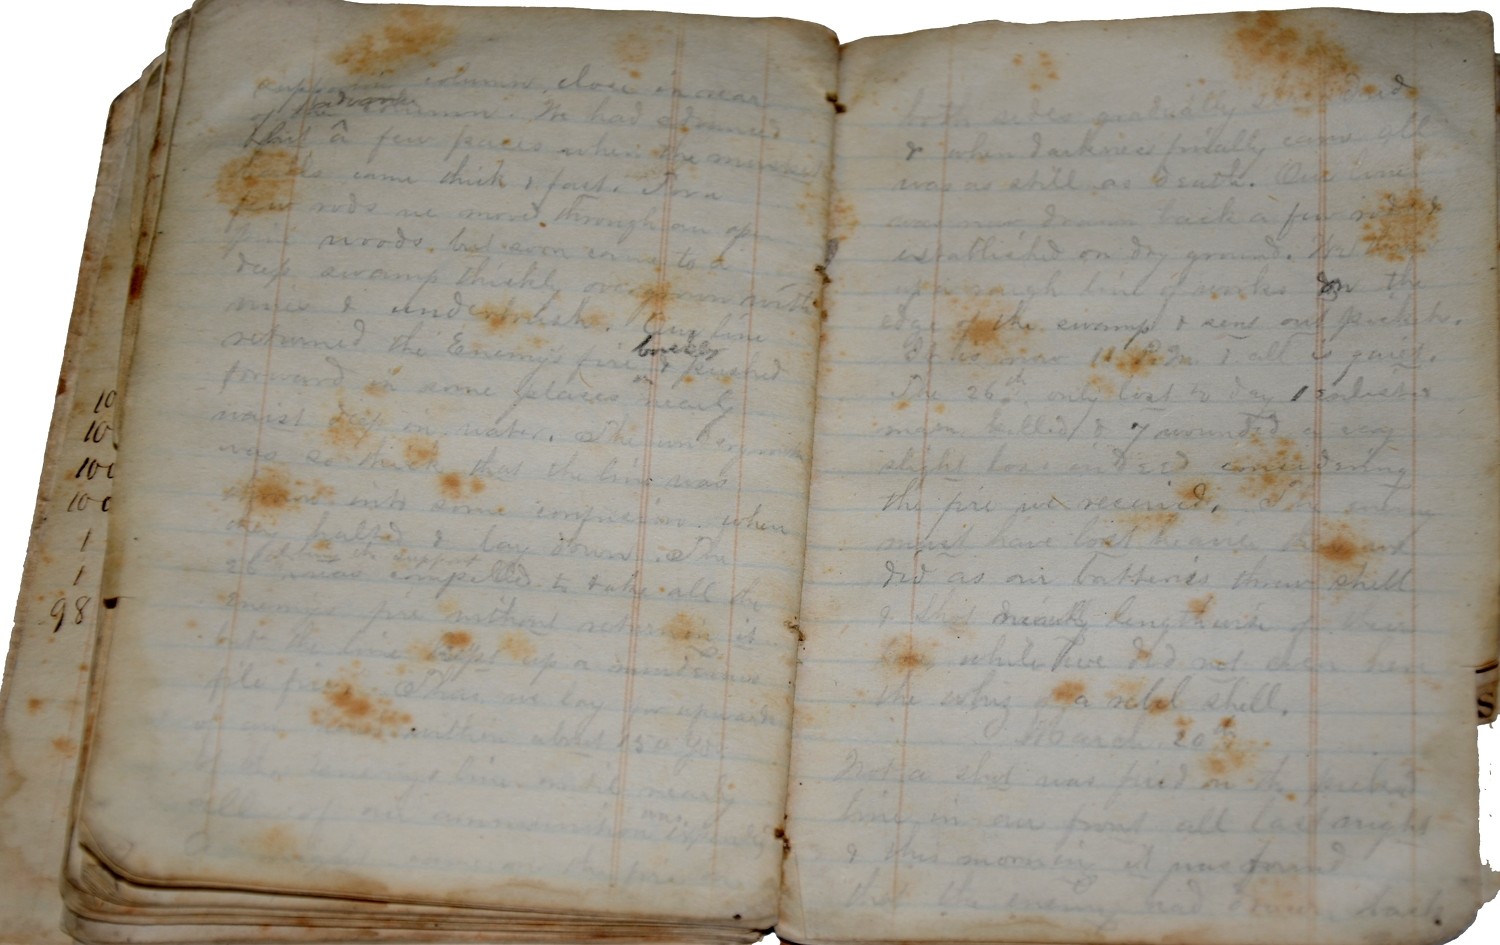 supporting column, close in rear
of the advance column. We had advanced
but a few paces when the musket
balls came thick & fast. For a
few rods we moved through an open
pine woods, but soon came to a
deep swamp thickly overgrown with
vines & underbrush. Our line
returned the Enemy's fire briskly & pushed
on
forward in some places nearly
waist deep in water. The undergrowth
was so thick that the line was
thrown into some confusion when
they halted & lay down. The
26th being the support
was compelled to take all the
Enemy's fire without returning it
but the line kept up a murderous
file fire. Thus we lay for upwards
of an hour within about 150 yds
of the Enemy's line until nearly
all of our ammunition was expended
night came on the fire on
both sides gradually
& when darkness finally came all
was as still as death. Our line
was now drawn back a few rods &
established on dry ground. We threw
up a rough line of works on the
edge of the swamp & sent out pickets.
It is now 11 P.M. & all is quiet.
The 26th only lost to day 1 enlisted
man killed & 7 wounded a very
slight loss indeed considering
the fire we received. The enemy
must have lost heavier than we
did as our batteries threw shell
& shot nearly lengthwise of their
line, while we did not even hear
the whiz of a rebel shell.
March 20th
Not a shot was fired on the picket
line in our front all last night
& this morning it was found
that the enemy had drawn back
10
10
100
100
1
1
98